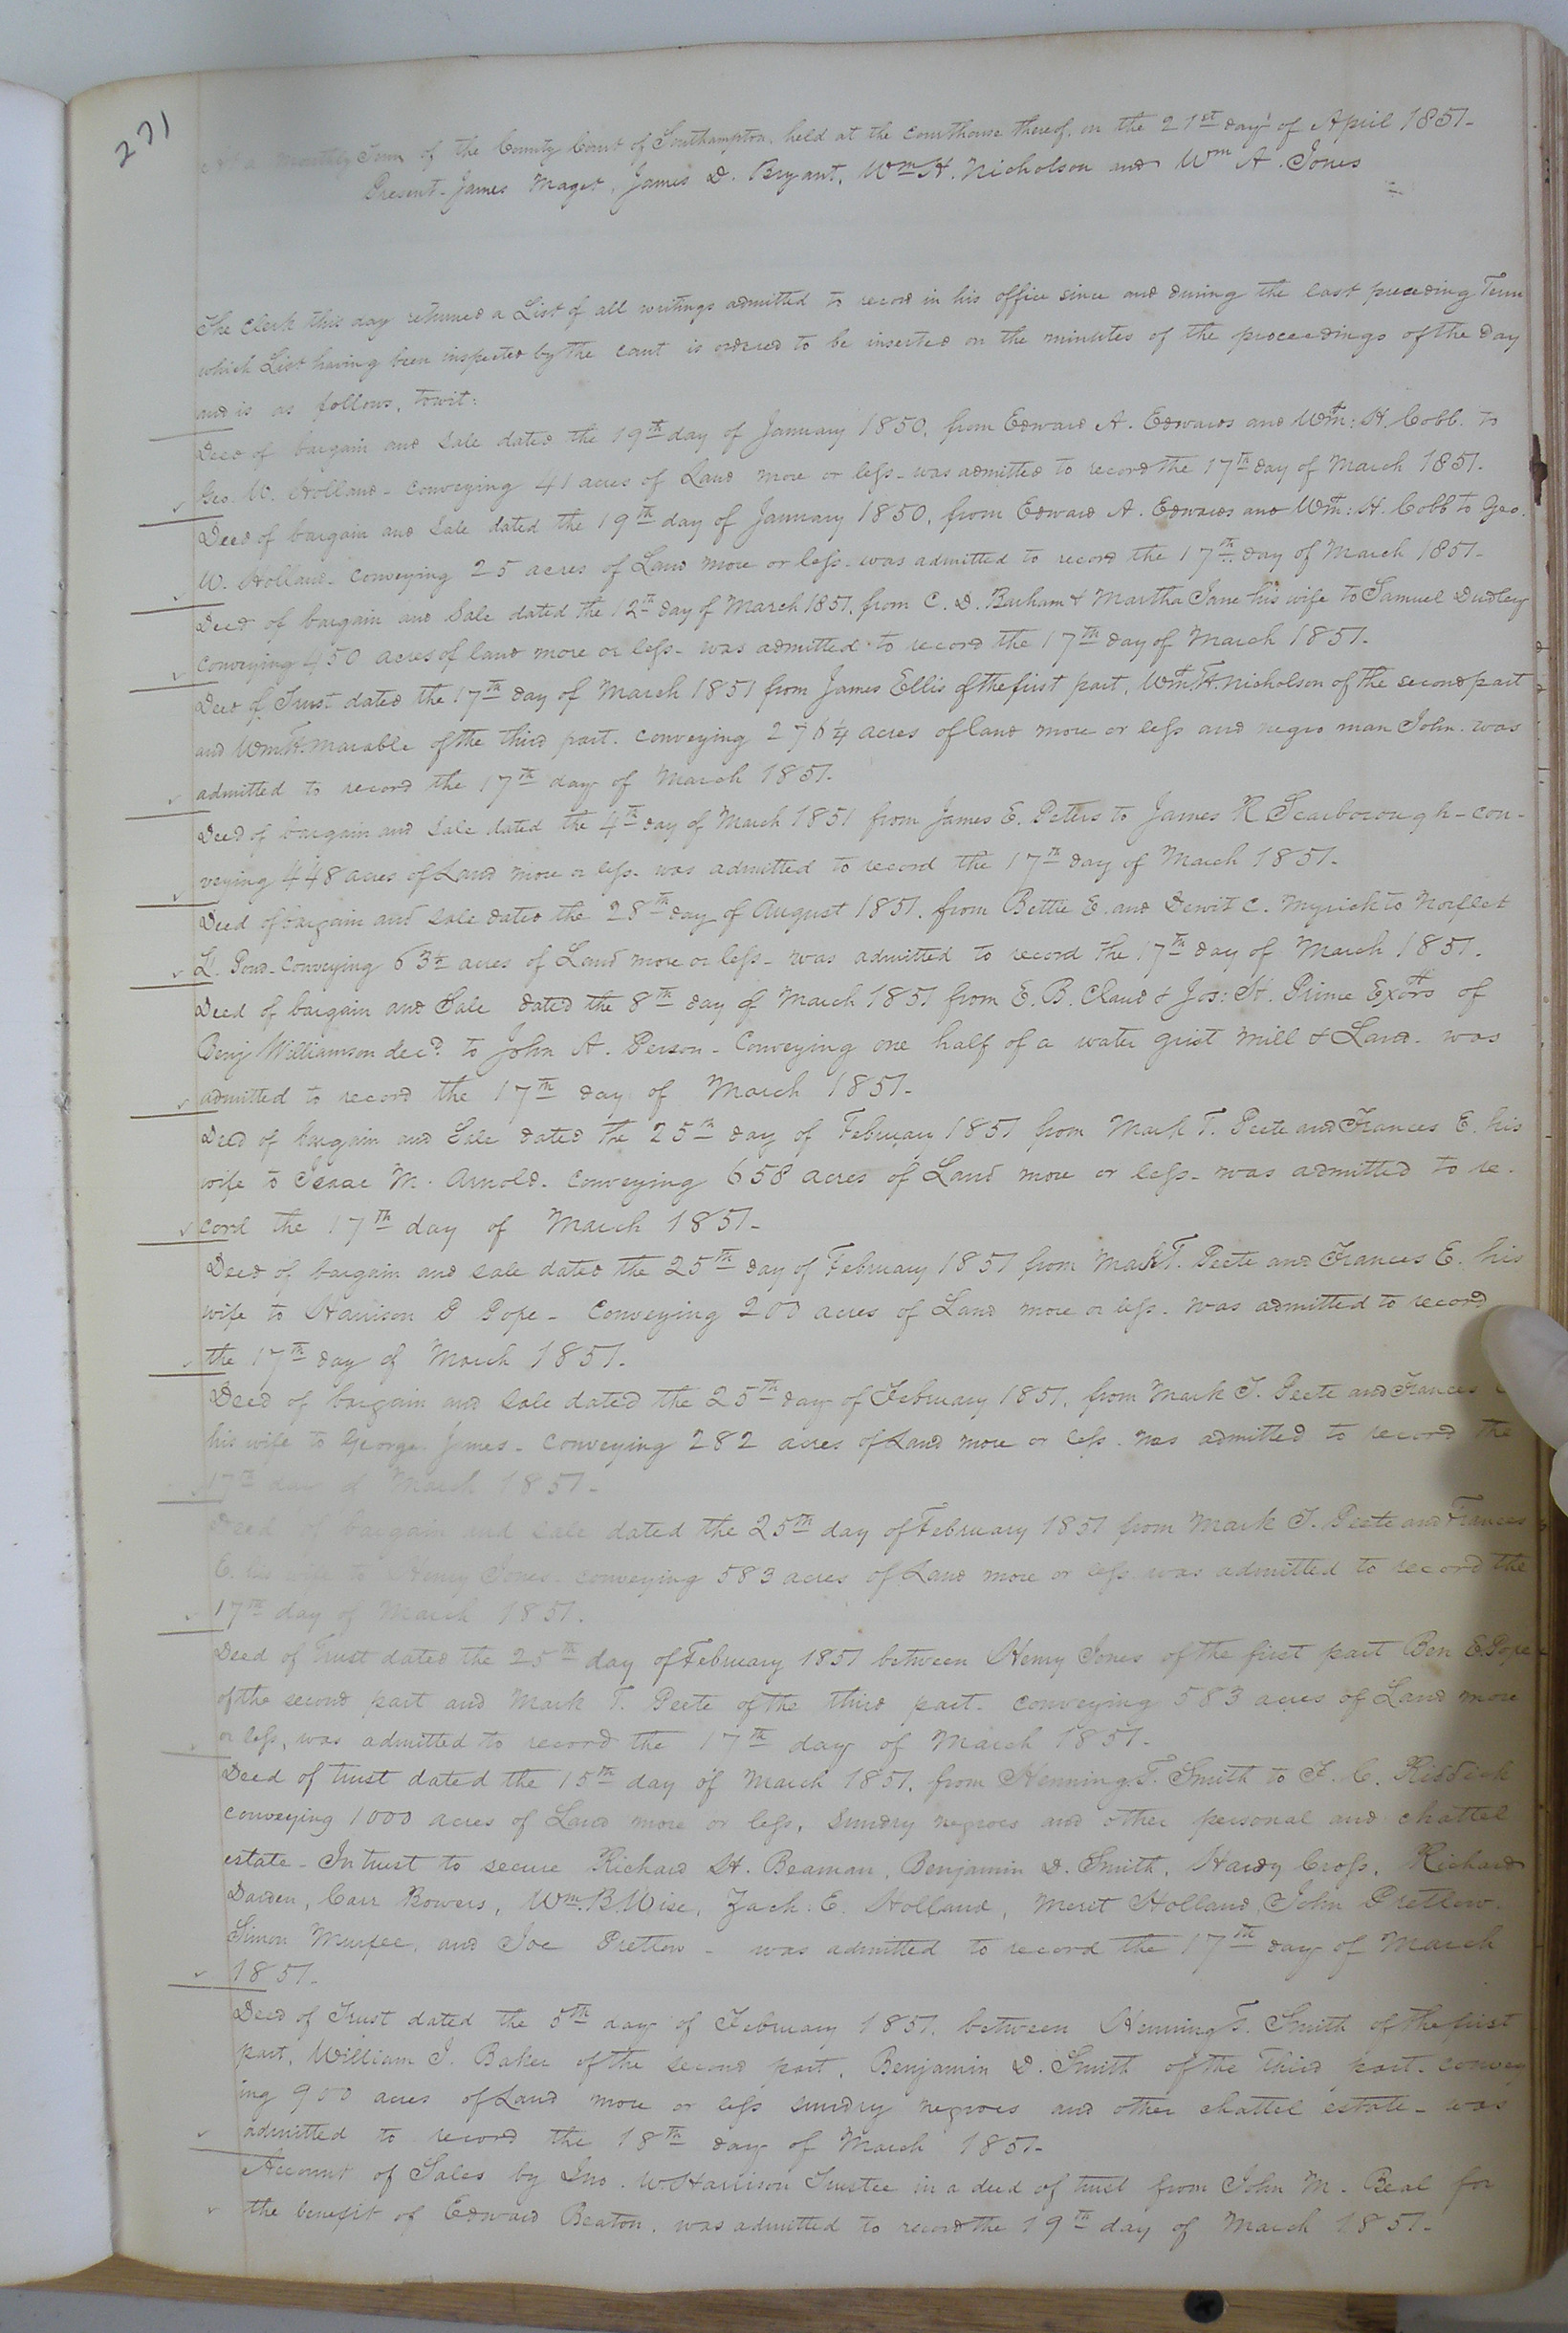 271
At a monthly Term of the County Court of Southampton, held at the Courthouse thereof, on the 21st day of April 1851-
Present- James Maget, James D. Bryant, Wm H. Nicholson and Wm A. Jones
The Clerk this day returned a List of all writings admitted to record in his office since and during the last preceding Term
which List having been inspected by the court is ordered to be inserted on the minutes of the proceedings of the day
and is as follows, towit:
Deed of bargain and sale dated the 19th day of January 1850, from Edward A. Edwards and Wm: H. Cobb to
Geo. W. Holland- conveying 41 acres of Land more or less- was admitted to record the 17th day of March 1851.
Deed of bargain and Sale dated the 19th day of January 1850, from Edward A. Edwards and Wm: H. Cobb to Geo.
W. Holland- conveying 25 acres of Land more or less- was admitted to record the 17th day of March 1851-
Deed of bargain and Sale dated the 12th day of March 1851, from C. D. Barham & Martha Jane his wife to Samuel Dudley
conveying 450 acres of land more or less- was admitted to record the 17th day of March 1851.
Deed of Trust dated the 17th day of March 1851 from James Ellis of the first part, Wm H. Nicholson of the second part
and Wm H. Marable of the third part. conveying 276¼ acres of land more or less and negro man John. was
admitted to record the 17th day of March 1851.
Deed of bargain and Sale dated the 4th day of March 1851 from James E. Peters to James R Scarborough- con-
veying 448 acres of Land more or less- was admitted to record the 17th day of March 1851-
Deed of bargain and sale dated the 28th day of August 1851, from Bettie E. and Dewit C. Myrick to Norflet
L. Pond- conveying 63½ acres of Land more or less- was admitted to record the 17th day of March 1851.
Deed of bargain and Sale dated the 8th day of March 1851 from E. B. Claud & Jos: H. Prince Exors of
Benj Williamson decd. to John A. Person- Conveying one half of a water grist mill & Land- was
admitted to record the 17th day of March 1851-
Deed of bargain and Sale dated the 25th day of February 1851 from Mark T. Peete and Frances E. his
wife to Isaac M. Arnold- conveying 658 acres of Land more or less- was admitted to re-
cord the 17th day of March 1851-
Deed of bargain and sale dated the 25th day of February 1851 from Mark T. Peete and Frances E. his
wife to Harrison P Pope- Conveying 200 acres of Land more or less- was admitted to record
the 17th day of March 1851.
Deed of bargain and sale dated the 25th day of February 1851, from Mark T. Peete and Frances
his wife to George James- conveying 282 acres of Land more or less- was admitted to record the
17th day of March 1851-
Deed of bargain and sale dated the 25th day of February 1851 from Mark T. Peete and Frances
E. his wife to Henry Jones- conveying 583 acres of Land more or less was admitted to record the
17th day of March 1851.
Deed of Trust dated the 25th day of February 1851 between Henry Jones of the first part Ben E Pope
of the second part and Mark T. Peete of the third part- conveying 583 acres of Land more
or less, was admitted to record the 17th day of March 1851-
Deed of trust dated the 15th day of March 1851, from Henning T. Smith to F. C. Riddick
conveying 1000 acres of Land more or less, Sundry negroes and other personal and chattel
estate- In trust to secure Richard H. Beaman, Benjamin D. Smith, Hardy Cross, Richard
Darden, Carr Bowers, Wm. B. Wise, Zach: E. Holland, Merit Holland, John Pretlow.
Simon Murfee, and Joe Pretlow- was admitted to record the 17th day of March
1851-
Deed of Trust dated the 5th day of February 1851. between Henning T. Smith of the first
part, William J. Baker of the second part, Benjamin D. Smith of the Third part- convey
ing 900 acres of Land more or less sundry negroes and other chattel estate- was
admitted to record the 18th day of March 1851-
Account of Sales by Jno. W Harrison Trustee in a deed of trust from John M. Beal for
the benefit of Edward Beaton, was admitted to record the 19th day of March 1851-